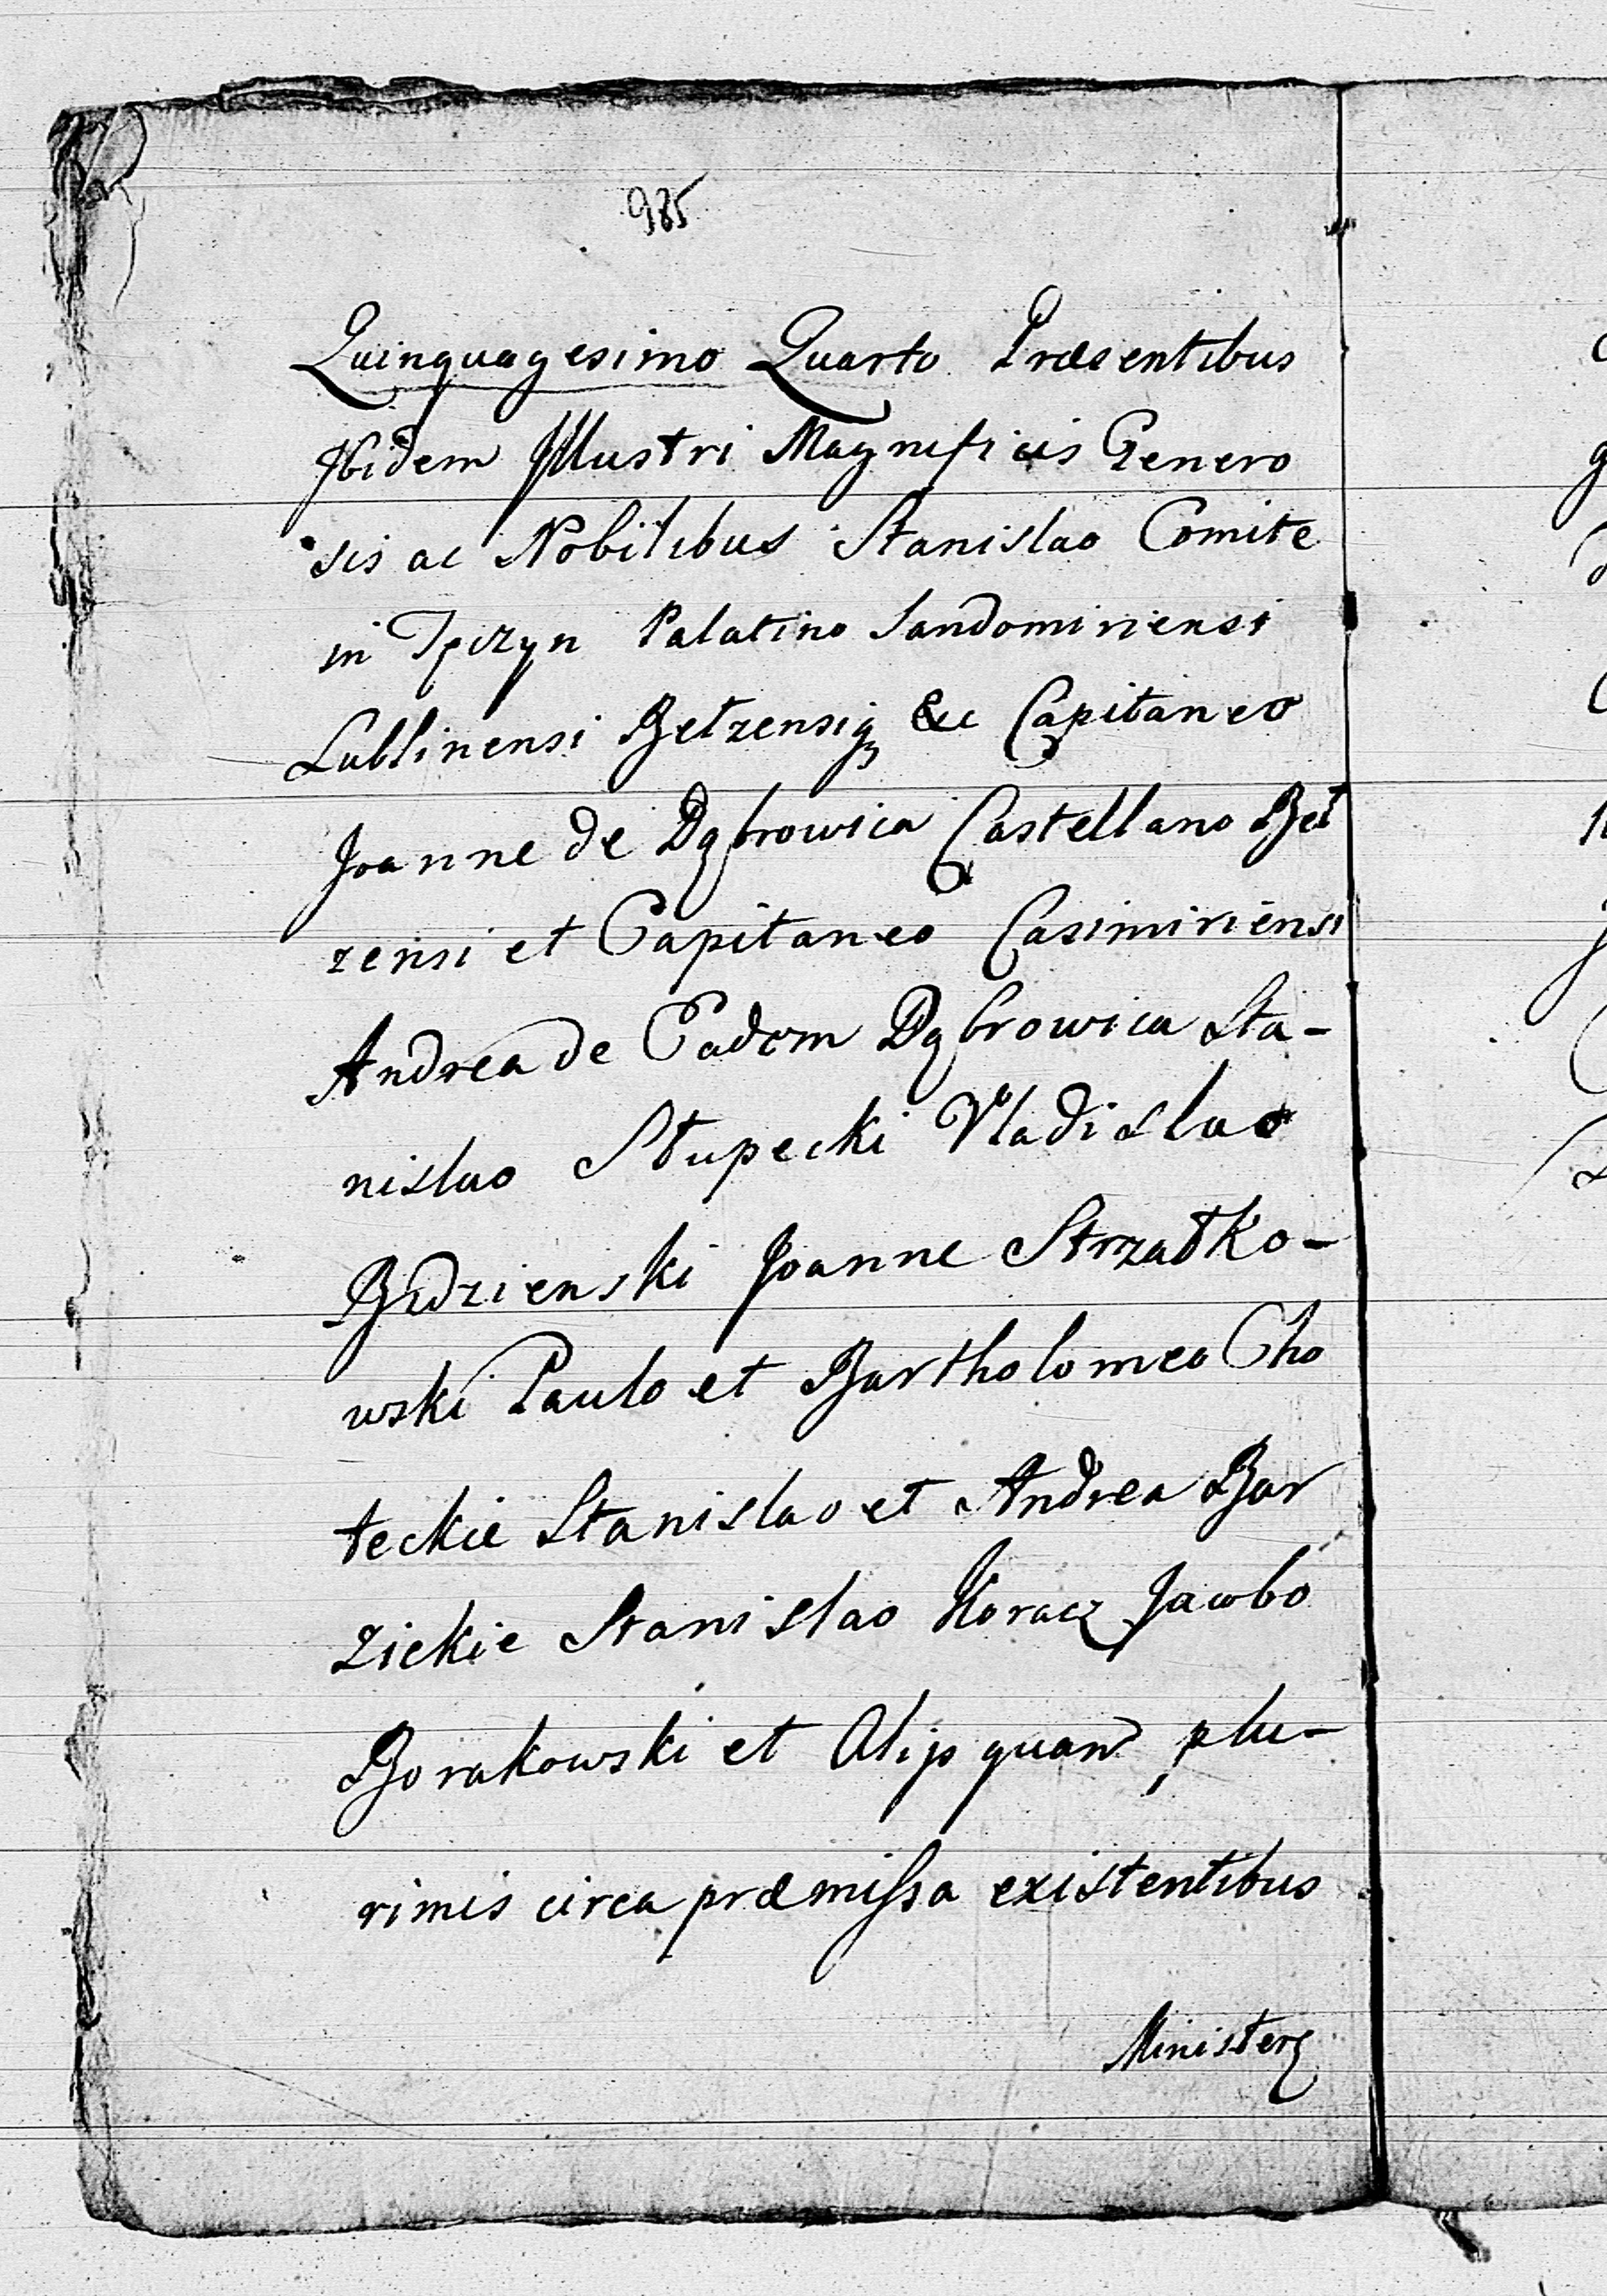 985
Quinquagesimo Quarto Præsentibus
Ibidem Illustri Magnificis Genero
sis ac Nobilibus Stanislao Comite
in Tęczyn Palatino Sandomiriensi
Lublinensi Bełzensiq₃ &c Capitaneo
Joanne de Dąbrowica Castellano Beł
zensi et Capitaneo Casimiriensi
Andrea de Eadem Dąbrowica Sta-
nislao Słupecki Vladislao
Bidzienski Joanne Strzałko-
wski Paulo et Bartholomeo Cho
teckie Stanislao et Andrea Bar
zickie Stanislao Koracz Jacobo
Borakowski et Alijs quam plu-
rimis circa præmissa existentibus
Ministerq